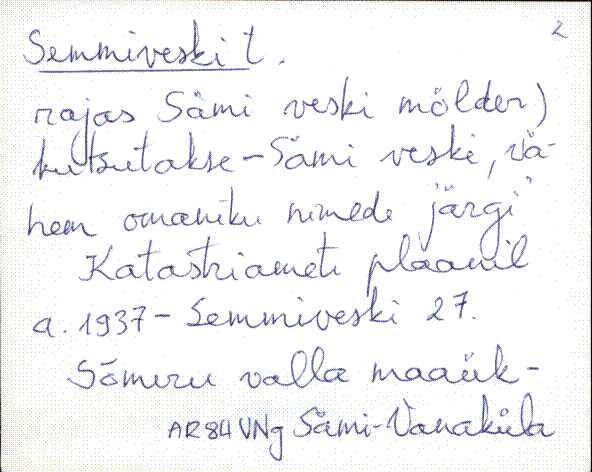 2
Semmiveski t.
rajas Sämi veski mölder)
kutsutakse - Sämi veski, vä-
hem omaniku nimede järgi"
Katastriameti plaanil
a. 1937 - Semmiveski 27.
Sõmeru valla maaük-
AR84VNg Sämi-Vanaküla